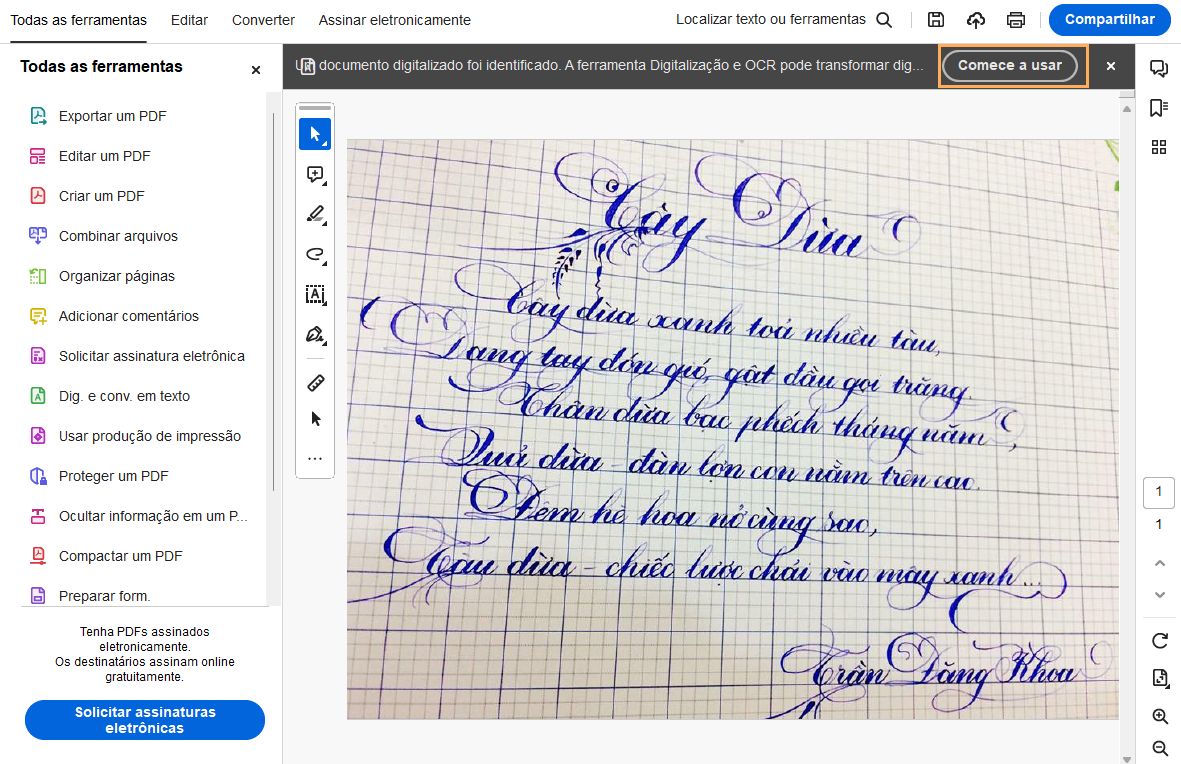 Todas as ferramentas
Editar
Converter
Assinar eletronicamente
Localizar texto ou ferramentas
Compartilhar
Todas as ferramentas
documento digitalizado foi identificado. A ferramenta Digitalização e OCR pode transformar dig...
Comece a usar
Exportar um PDF
Editar um PDF
Criar um PDF
Combinar arquivos
Organizar páginas
Adicionar comentários
Solicitar assinatura eletrônica
Dig. e conv. em texto
Usar produção de impressão
Proteger um PDF
Ocultar informação em um P...
Compactar um PDF
Preparar form.
Tenha PDFs assinados
eletronicamente.
Os destinatários assinam online
gratuitamente.
Solicitar assinaturas
eletrônicas
Cây Dừa
Cây dừa xanh toả nhiều tàu,
Dang tay đón gió, gật đầu gọi trăng.
Thân dừa bạc phếch tháng năm,
Quả dừa - đàn lợn con nằm trên cao.
Đêm hè hoa nở cùng sao,
Tàu dừa - chiếc lược chải vào mây xanh...
Trần Đăng Khoa
1
1